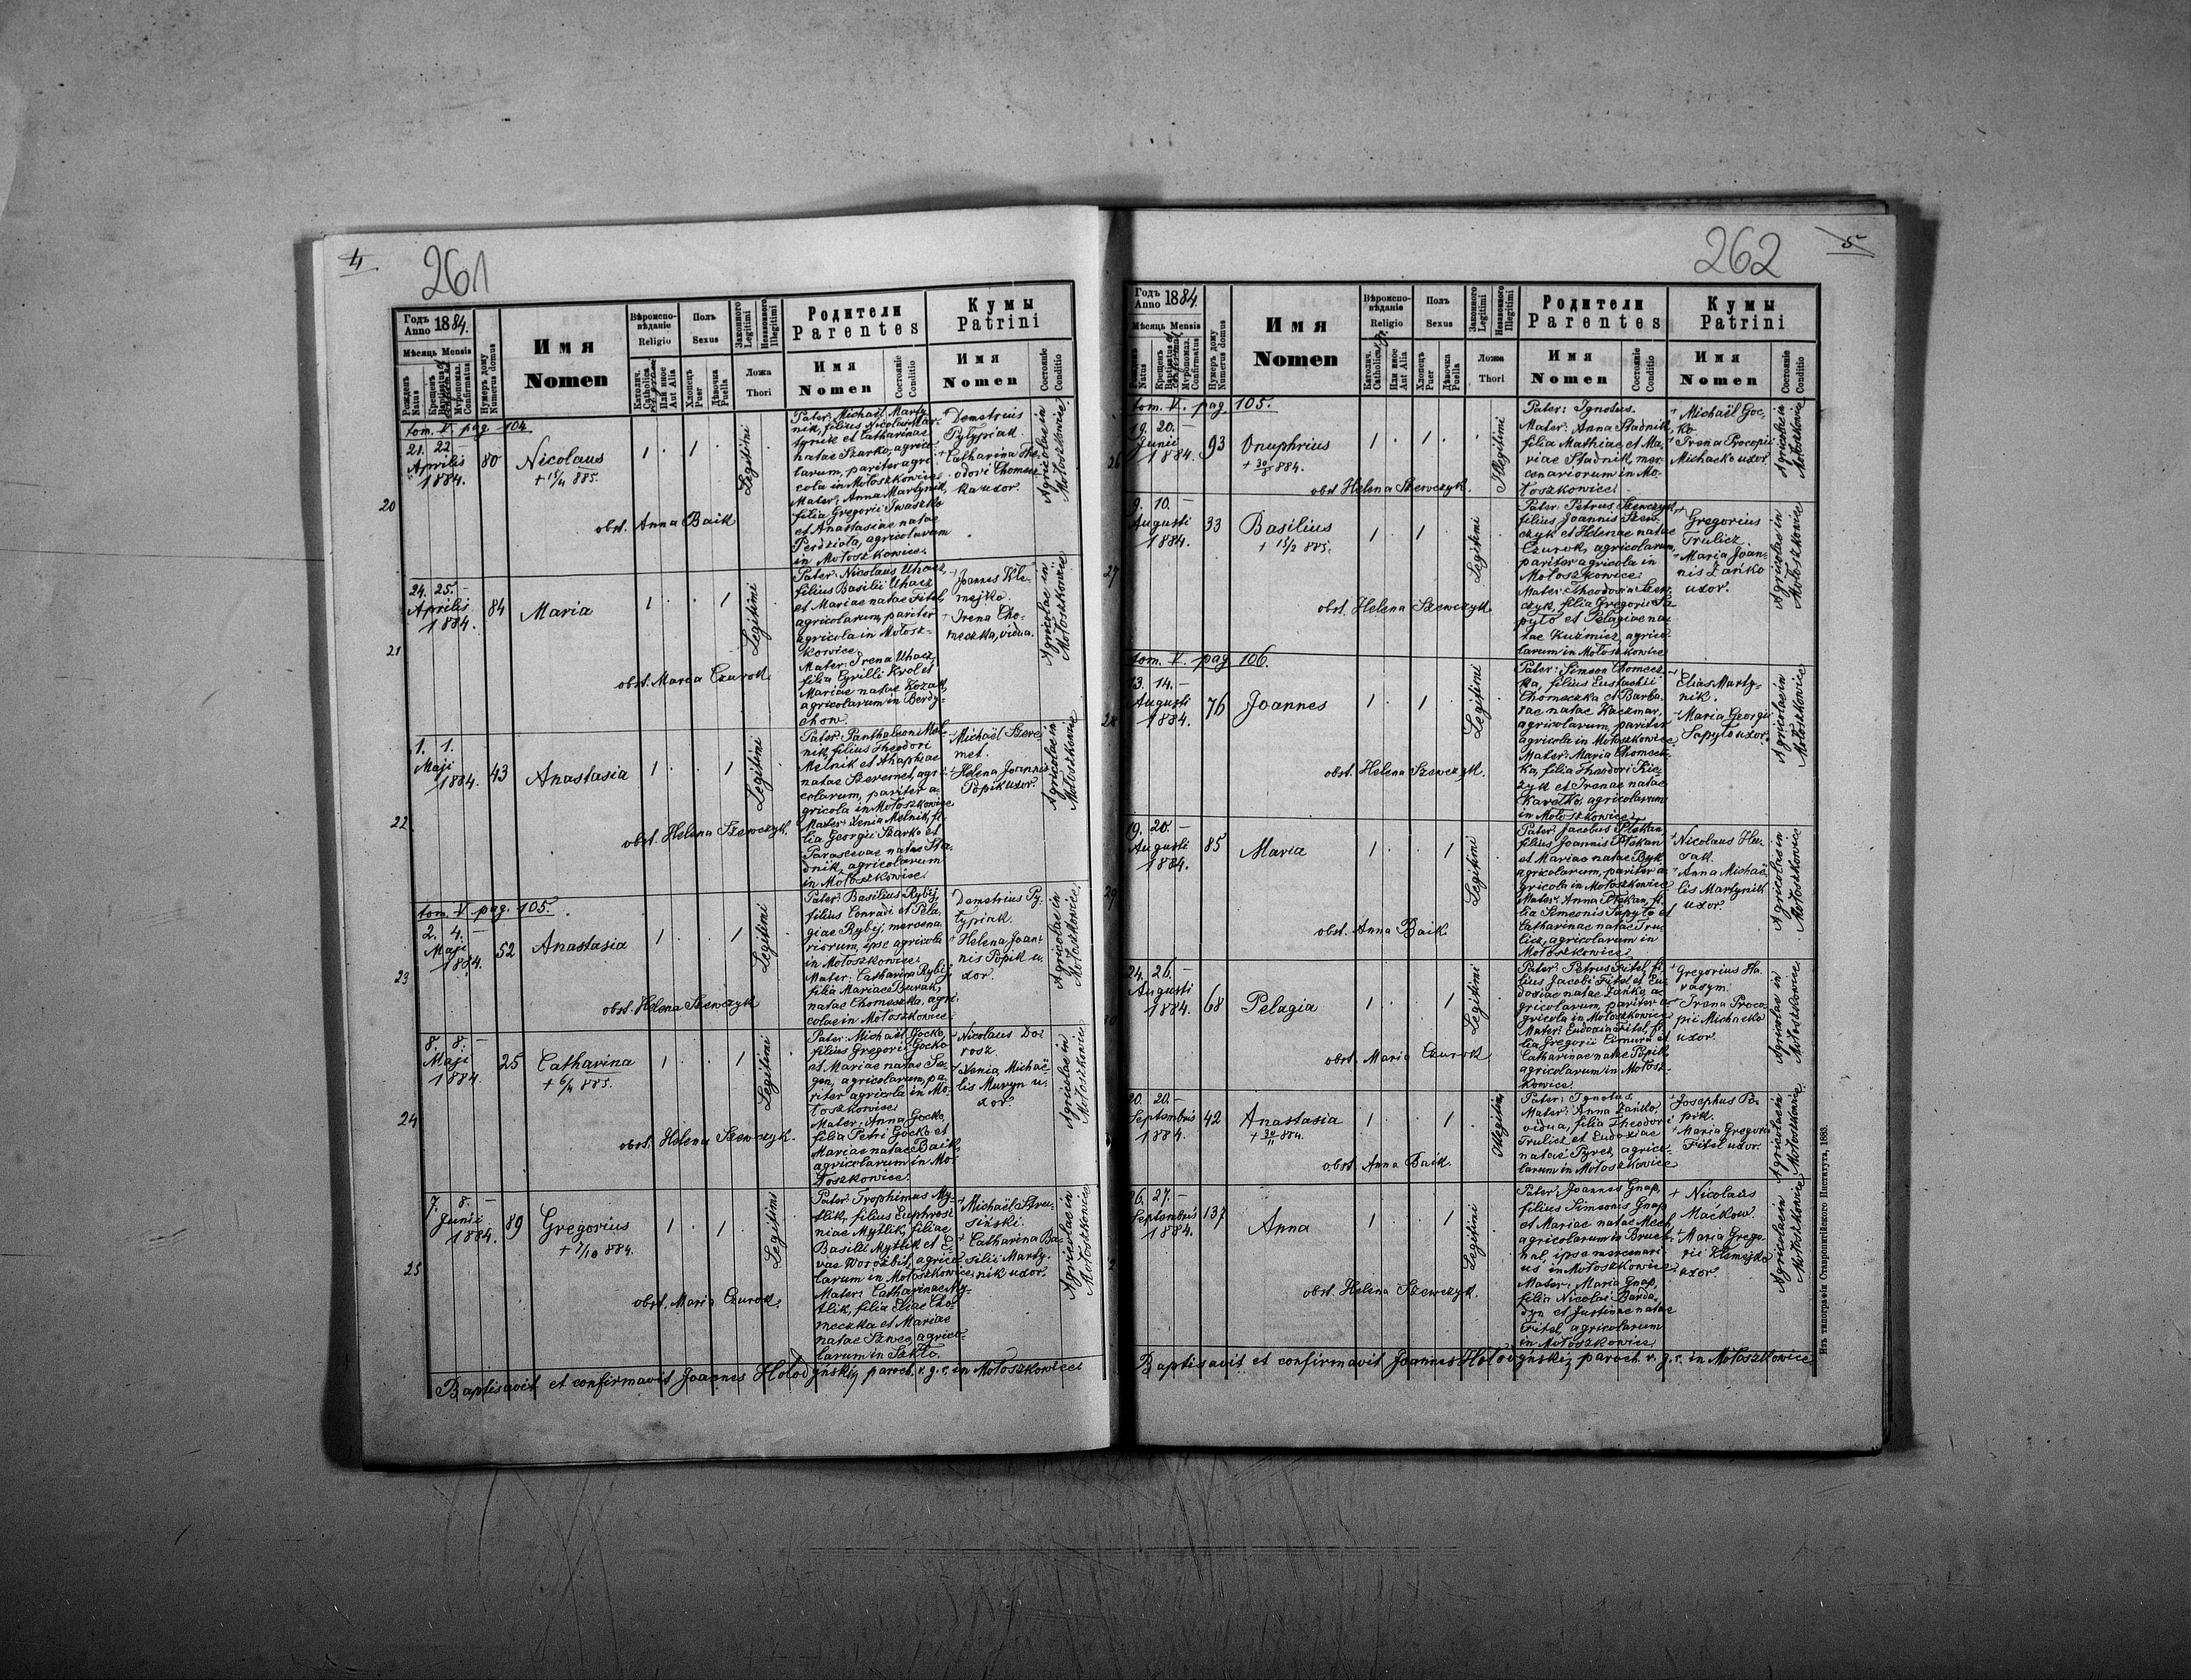 4
261
Годъ Anno 1884.
Мѣсяцъ Mensis
Рожденъ Natus
Крещенъ Baptisatus et
Мѵропомаз. Confirmatus
Нумеръ дому Numerus domus
Имя
Nomen
Вѣроиспо-
вѣданіе
Religio
Католич. Catholica
Или иное Aut Alia
Полъ
Sexus
Хлопецъ Puer
Дѣвочка Puella
Законного Legitimi
Незаконного Illegitimi
Ложа
Thori
Родители
Parentes
Имя
Nomen
Состояніе Conditio
Кумы
Patrini
Имя
Nomen
Состояніе Conditio
tom. V. pag. 104
20
21. 22
Aprilis
1884.
80
Nicolaus
+ 15/4 885.
1 . 1 .
Legitimi
obst. Anna Baik
Pater: Michaël Marty-
nik, filius Nicolai Mar-
tynik et Catharinae
natae Szarko, agrico-
larum, pariter agri-
cola in Mołoszkowice
Mater: Anna Martynik,
filia Gregorii Iwaszko
et Anastasiae natae
Perdziola, agricolarum
in Mołoszkowice.
+ Demetrius
Pyłypiak
+ Catharina The-
odori Chomecz-
ka uxor.
Agricolae in
Mołoszkowice
21
24. 25. –
Aprilis
1884.
84
Maria
1 . . 1
Legitimi
obst. Maria Czurok
Pater: Nicolaus Uhacz,
filius Basilii Uhacz
et Mariae natae Fitel,
agricolarum, pariter
agricola in Mołosz-
kowice.
Mater: Irena Uhacz,
filia Cyrilli Krol et
Mariae natae Kozak,
agricolarum in Berdy-
chow.
+ Joannes Kle-
mejko.
+ Irena Cho-
meczka, vidua.
Agricolae in
Mołoszkowice
22
1. 1.
Maji
1884.
43
Anastasia
1 . . 1
Legitimi
obst. Helena Szewczyk.
Pater: Panthaleon Mel-
nik, filius Theodori
Melnik et Ahaphiae
natae Szeremet, agri-
colarum, pariter a-
gricola in Mołoszkowice
Mater: Xenia Melnik, fi-
lia Georgii Szarko et
Parascevae natae Sta-
dnik, agricolarum
in Mołoszkowice.
+ Michaël Szere-
met.
+ Helena Joannis
Popik uxor.
Agricolae in
Mołoszkowice
tom. V pag. 105.
23
2. 4. –
Maji
1884.
52
Anastasia
1 . . 1
Legitimi
obst. Helena Szewczyk
Pater: Basilius Rybij,
filius Conradi et Pela-
giae Rybij, mercena-
riorum, ipse agricola
in Mołoszkowice.
Mater: Catharina Rybij,
filia Mariae Burak,
natae Chomeczka, agri-
colae in Mołoszkowice
Demetrius Py-
łypiak
+ Helena Joan-
nis Popik u-
xor.
Agricolae in
Mołoszkowice
24
8. 8. –
Maji
1884
25
Catharina
+ 6/4 885.
1 . . 1
Legitimi
obst. Helena Szewczyk.
Pater: Michaël Gocko,
filius Gregorii Gocko
et Mariae natae Se-
gen, agricolarum, pa-
riter agricola in Mo-
łoszkowice.
Mater: Anna Gocko,
filia Petri Gocko et
Mariae natae Baik,
agricolarum in Mo-
łoszkowice.
+ Nicolaus Do-
rosz
+ Xenia Michaë-
lis Muryn u-
xor.
Agricolae in
Mołoszkowice
25
7. 8. –
Junii
1884.
89
Gregorius
+ 7/10 884.
1 . 1 .
Legitimi
obst. Maria Czurok.
Pater: Trophimus My-
tlik, filius Euphrosi-
niae Mytlik, filiae
Basilii Mytlik et E-
vae Worożbit, agrico-
larum in Mołoszkowice
Mater: Catharina My-
tlik, filia Eliae Cho-
meczka et Mariae
natae Szwec, agrico-
larum in Szkło.
+ Michaël Stru-
sinski.
+ Catharina Ba-
silii Marty-
nik uxor.
Agricolae in
Mołoszkowice
Baptisavit et confirmavit Joannes Hołodyński, paroch. r. g. c. in Mołoszkowice
5
262
Годъ Anno 1884.
Мѣсяцъ Mensis
Рожденъ Natus
Крещенъ Baptisatus et
Мѵропомаз. Confirmatus
Нумеръ дому Numerus domus
Имя
Nomen
Вѣроиспо-
вѣданіе
Religio
Католич. Catholica
Или иное Aut Alia
Полъ
Sexus
Хлопецъ Puer
Дѣвочка Puella
Законного Legitimi
Незаконного Illegitimi
Ложа
Thori
Родители
Parentes
Имя
Nomen
Состояніе Conditio
Кумы
Patrini
Имя
Nomen
Состояніе Conditio
tom. V. pag. 105.
26
19. 20.
Junii
1884.
93
Onuphrius
+ 30/8 884.
1 . 1 .
Illegitimi
obst Helena Szewczyk.
Pater: Ignotus.
Mater: Anna Stadnik,
filia Mathiae et Ma-
riae Stadnik, mer-
cenariorum in Mo-
łoszkowice.
+ Michaël Goc-
ko
+ Irena Procopii
Michacko uxor.
Agricolae in
Mołoszkowice
27
9. 10. –
Augusti
1884.
33
Basilius
+ 15/2 885.
1 . 1 .
Legitimi
obst. Helena Szewczyk.
Pater: Petrus Szewczyk,
filius Joannis Szew-
czyk et Helenae natae
Czurok, agricolarum,
pariter agricola in
Mołoszkowice.
Mater: Theodora Szew-
czyk, filia Gregorii Sa-
pyło et Pelagiae na-
tae Kuźmicz, agrico-
larum in Mołoszkowice
+ Gregorius
Trulicz
+ Maria Joan-
nis Zańko
uxor.
Agricolae in
Mołoszkowice
tom. V. pag 106.
28
13. 14. –
Augusti
1884.
76
Joannes
1 . 1
Legitimi
obst. Helena Szewczyk.
Pater: Simeon Chomecz-
ka, filius Eustachii
Chomeczka et Barba-
rae natae Kaczmar,
agricolarum, pariter
agricola in Mołoszkowice.
Mater: Maria Chomecz-
ka, filia Theodori Kic-
zyk et Irenae natae
Karetko, agricolarum
in Mołoszkowice.
+ Elias Marty-
nik.
+ Maria Georgii
Sapyło uxor.
Agricolae in
Mołoszkowice
29
19. 20. –
Augusti
1884.
85
Maria
1 . . 1
Legitimi
obst. Anna Baik
Pater: Jacobus Ptekan,
filius Joannis Ptekan
et Mariae natae Byk,
agricolarum, pariter a-
gricola in Mołoszkowice
Mater: Anna Ptekan, fi-
lia Simeonis Sapyło et
Catharinae natae Tru-
licz, agricolarum in
Mołoszkowice.
+ Nicolaus Hu-
sak.
+ Anna Michaë-
lis Martynik
uxor.
Agricolae in
Mołoszkowice
30
24. 26. –
Augusti
1884.
68
Pelagia
1 . . 1
Legitimi
obst. Maria Czurok
Pater: Petrus Fitel, fi-
lius Jacobi Fitel et Eu-
doxiae natae Zańko, a-
gricolarum, pariter a-
gricola in Mołoszkowice
Mater: Eudoxia Fitel, fi-
lia Gregorii Cimura et
Catharinae natae Popik,
agricolarum in Mołosz-
kowice.
+ Gregorius Ha-
rasym.
+ Irena Proco-
pii Michacko
uxor.
Agricolae in
Mołoszkowice
20. 20. –
Septembris
1884.
42
Anastasia
+ 30/11 884.
1 . . 1
Illegitimi
obst. Anna Baik.
Pater: Ignotus.
Mater: Anna Zańko,
vidua, filia Theodori
Trulicz et Eudoxiae
natae Pyrcz, agrico-
larum in Mołoszkowice
+ Josephus Po-
pik.
+ Maria Gregorii
Fitel uxor.
Agricolae in
Mołoszkowice
26. 27. –
Septembris
1884.
137
Anna
1 . . 1
Legitimi
obst. Helena Szewczyk.
Pater: Joannes Gnap,
filius Simeonis Gnap
et Mariae natae Mech,
agricolarum in Bruch-
nal, ipse mercenari-
us in Mołoszkowice.
Mater: Maria Gnap,
filia Nicolai Barda-
dyn et Justinae natae
Fitel, agricolarum
in Mołoszkowice
+ Nicolaus
Maćkow.
+ Maria Grego-
rii Klemejko
uxor.
Agricolae in
Mołoszkowice
Baptisavit et confirmavit Joannes Hołodyński, paroch. r. g. c. in Mołoszkowice
Изъ типографіи Ставропигійского Института, 1883.